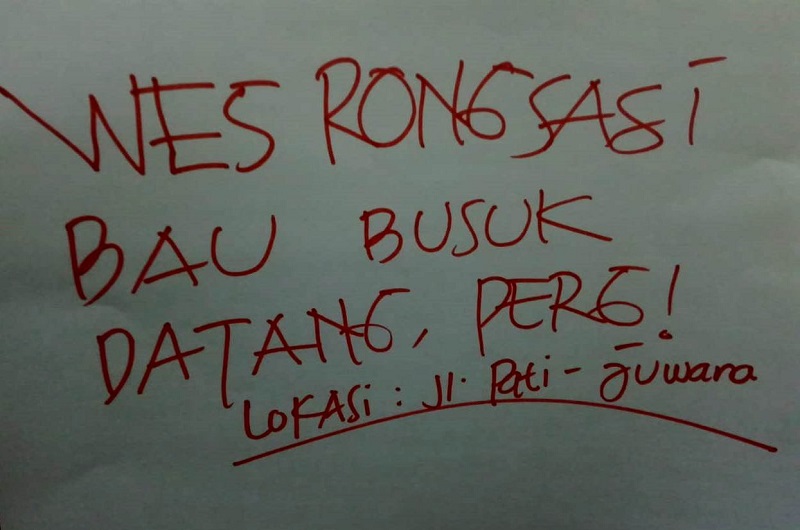 WES RONGSASI
BAU BUSUK
DATANG, PERG!
LOKASi : Jl. Pati - Juwana